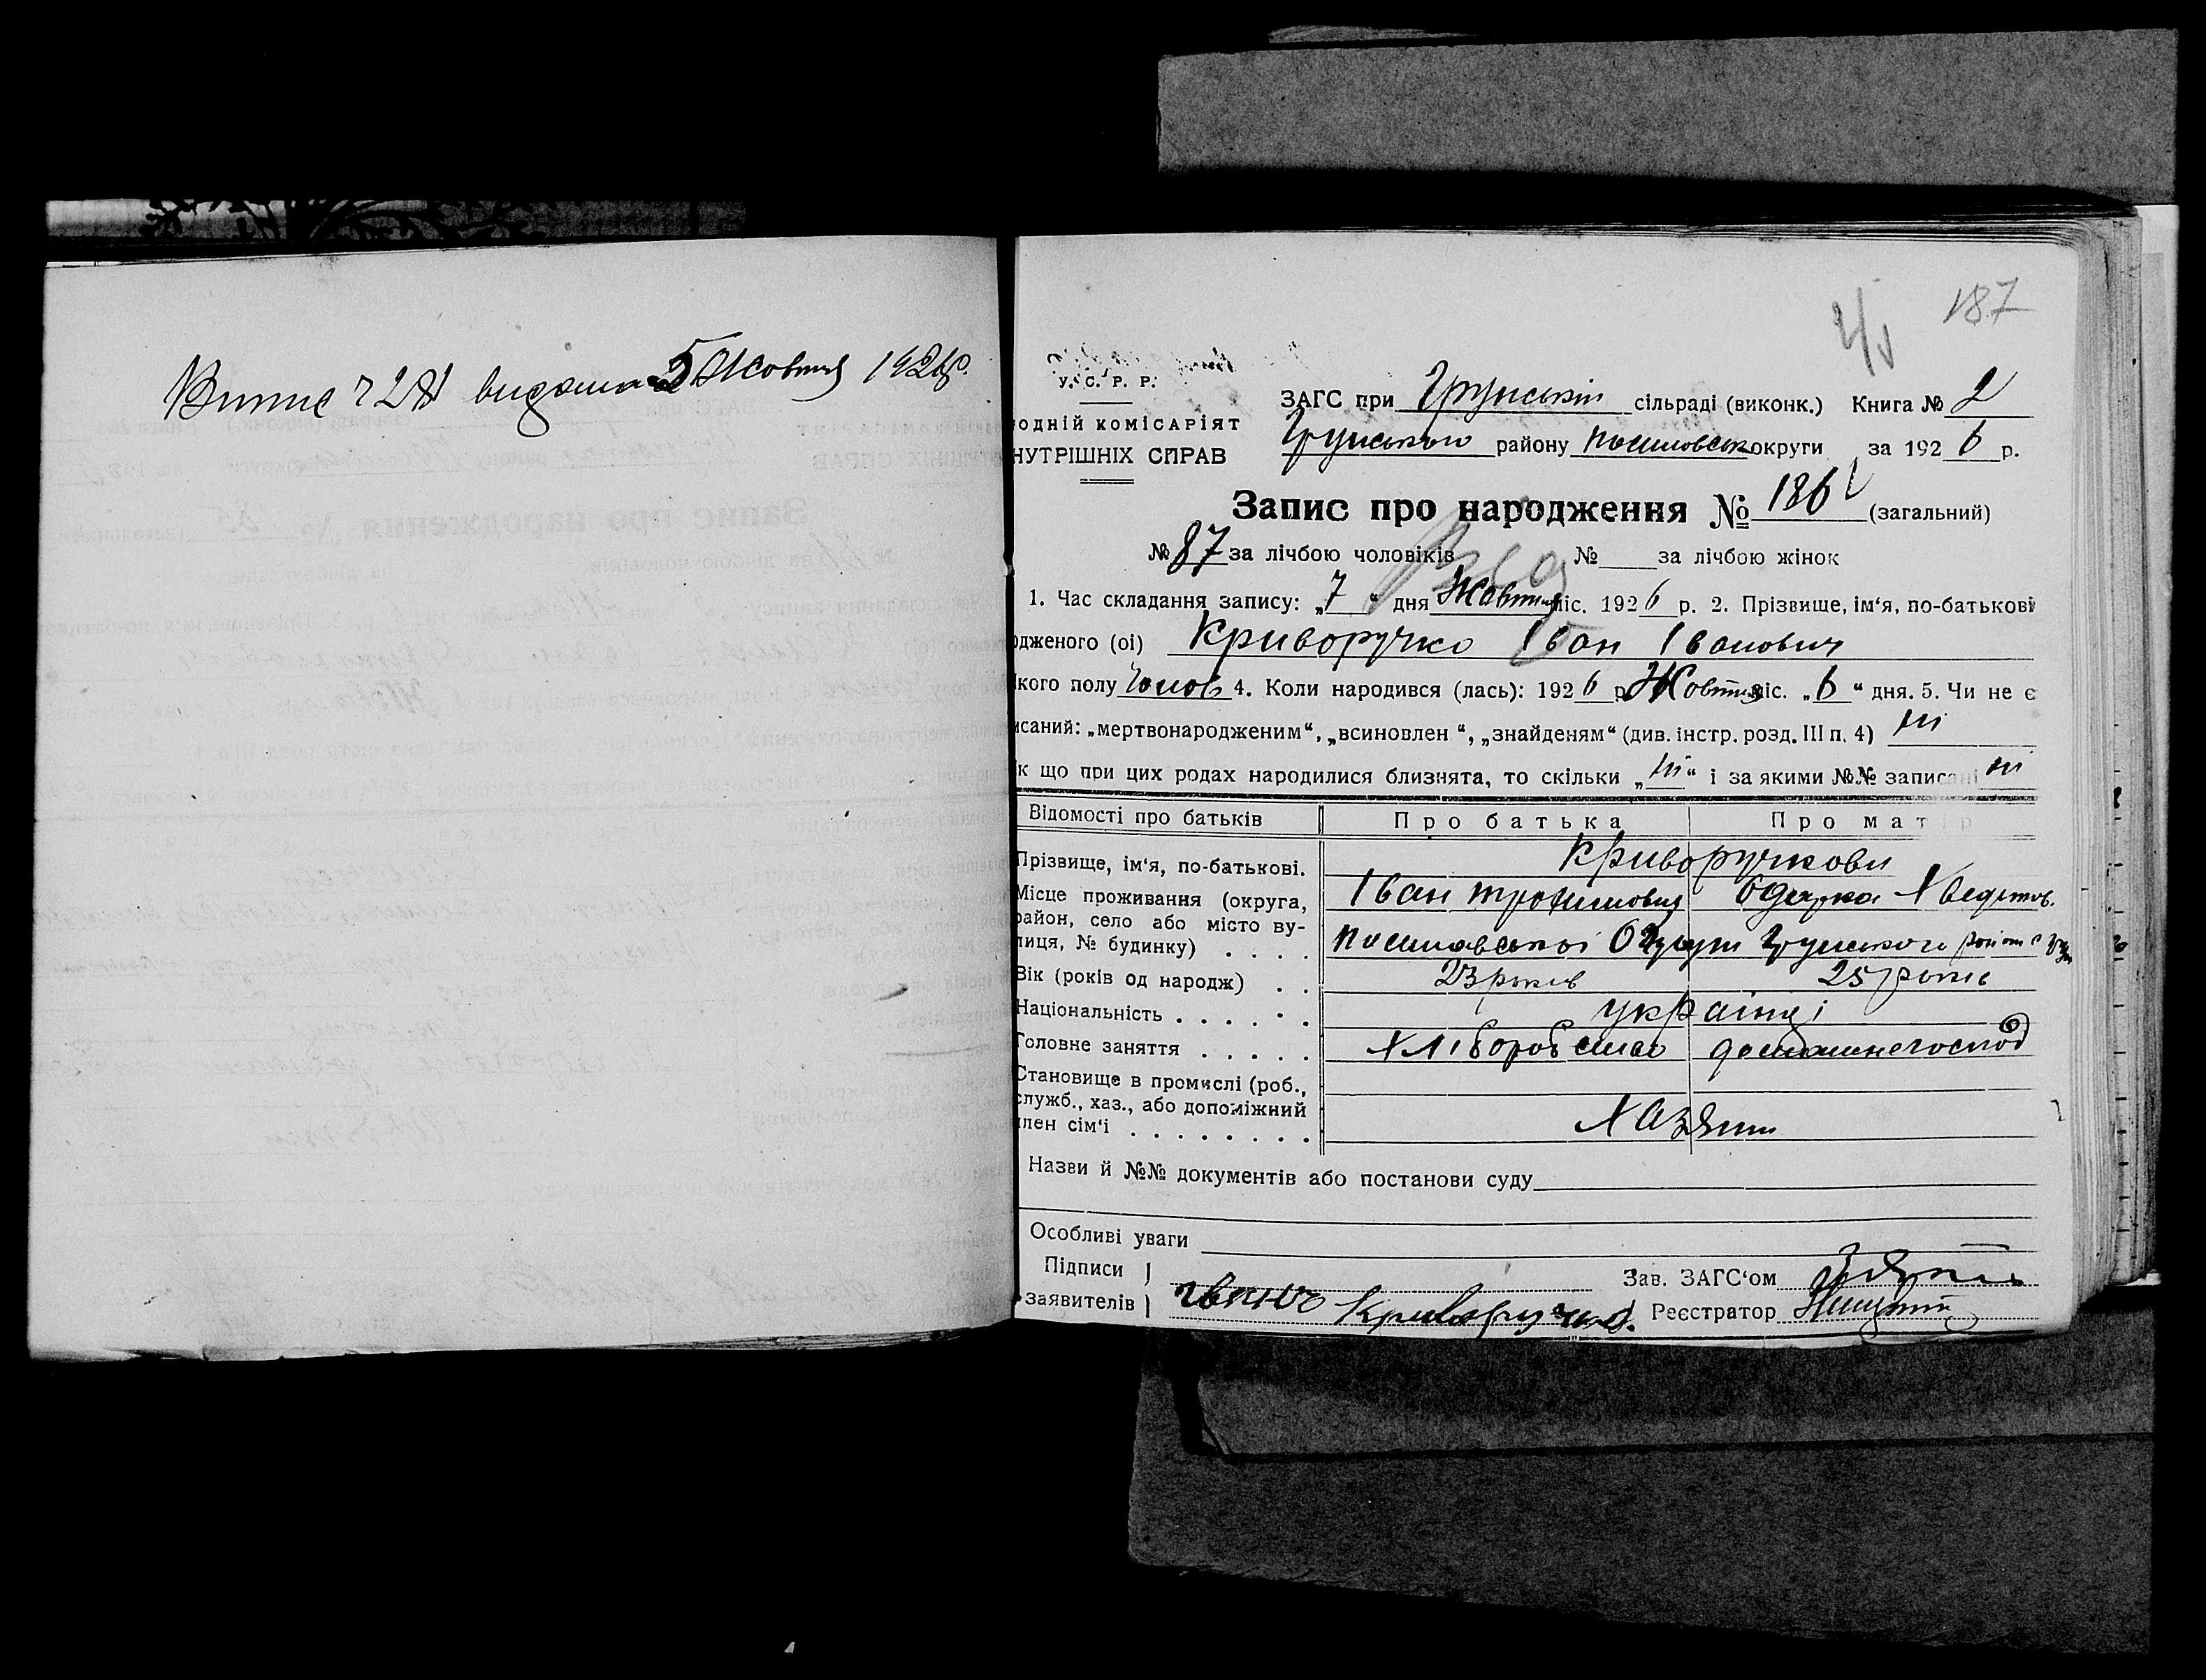 Випис видана 5 Жовтня 1926р.
187
У. С. Р. Р.
одній комісаріят
нутрішніх справ
ЗАГС при Грунській сільраді (виконк.) Книга № 2
Грунського району округи за 1926 р.
Запис про народження № 186 (загальний)
№ 87 за лічбою чоловіків № за лічбою жінок
1. Час складання запису: „7“ дня Жовтня міс. 1926 р. 2. Прізвище, ім‘я, по-батькові
одженого (ої) Криворучко Іван Іванович
кого полу Чолов 4. Коли народився (лась): 1926 р. Жовтня міс. „6“ дня. 5. Чи не є
исаний: „мертвонародженим“, „всиновлен “, „знайденям“ (див. інстр. розд. III п. 4) ні
к що при цих родах народилися близнята, то скільки „ні“ і за якими №№ записані ні
Відомості про батьків Про батька Про матір
Прізвище, ім‘я, по-батькові. Криворучкови
Місце проживання (округа, Іван Трохимович Одарка Хведотов.
район, село або місто ву-
лиця, № будинку) . . . . Округи Грунського район с
Вік (років од народж) . . 23 років 25 років
Національність . . . . . . українці
Головне заняття . . . . . Хліборобство домашнє господ
Становище в промислі (роб.,
служб., хаз., або допоміжний
член сім‘ї . . . . . . . . Хазяїни
Назви й №№ документів або постанови суду
Особливі уваги
Підписи Зав. ЗАГС‘ом
заявителів Криворучко. Реєстратор